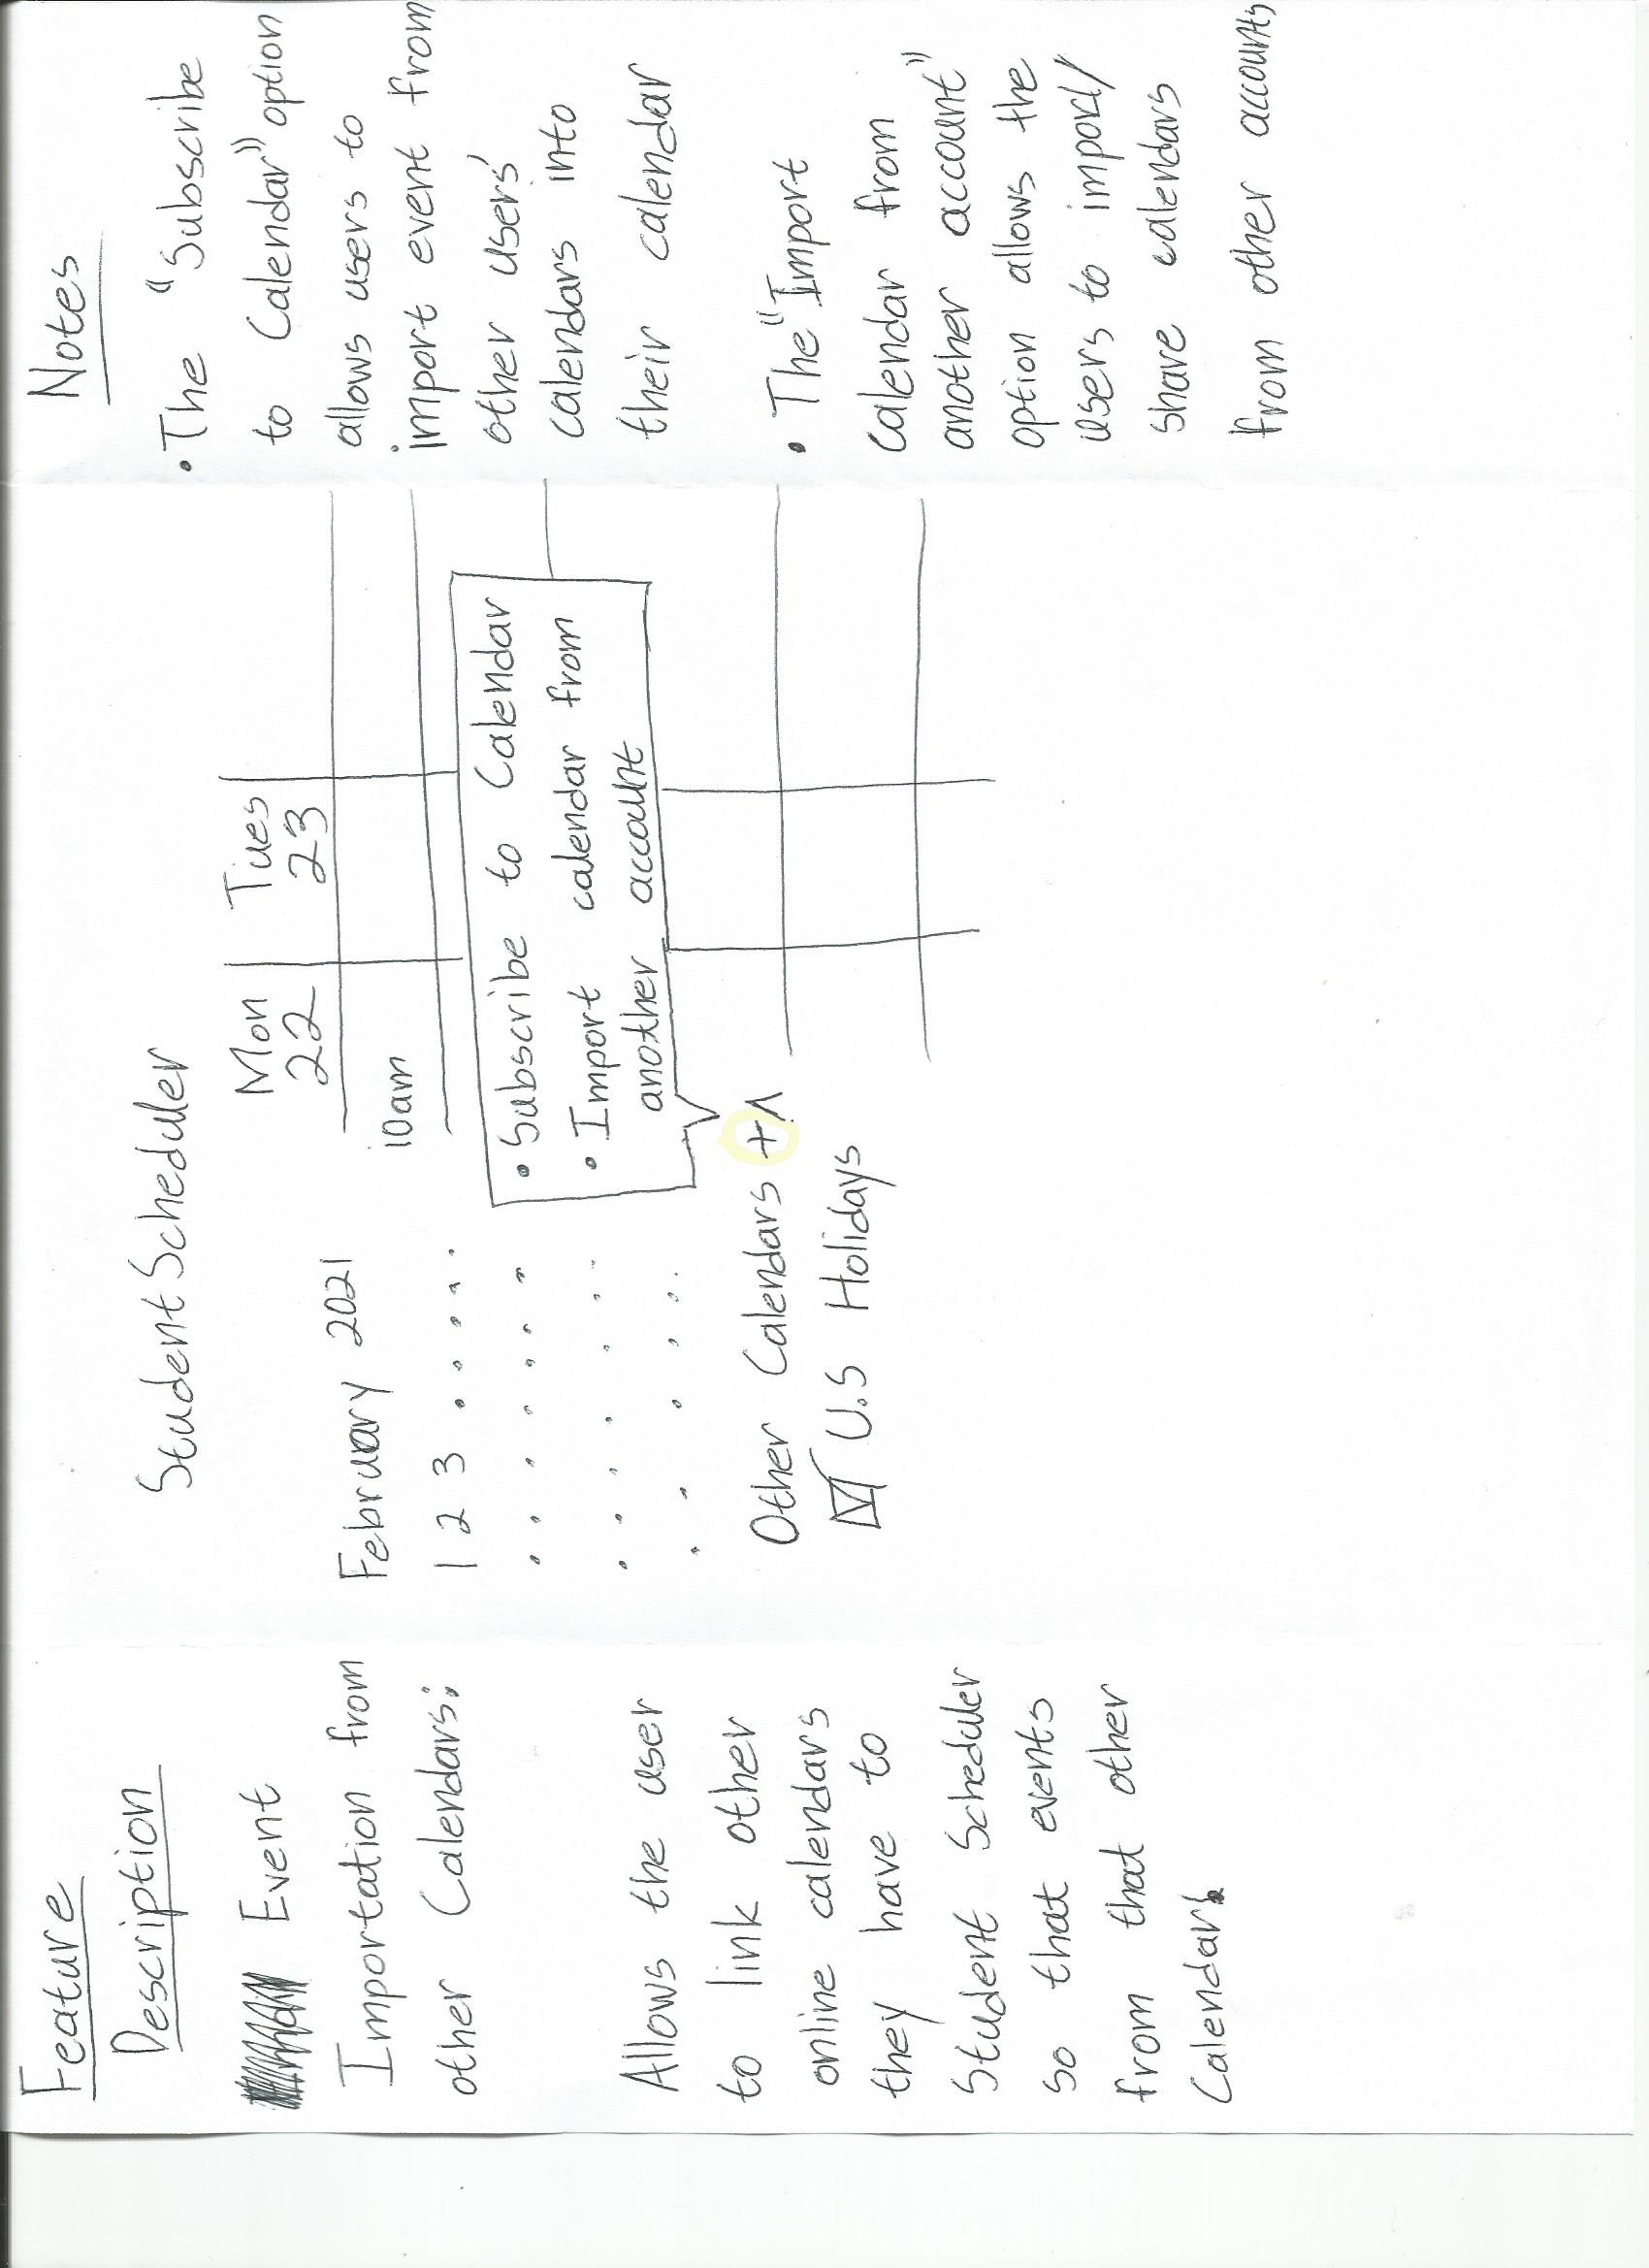 Feature
Description
Event
Importation from
other Calendars:
Allows the user
to link other
online calendars
they have to
Student Scheduler
so that events
from that other
Calendar.
Student Scheduler
Mon Tues
22 23
February 2021
10am
1 2 3
• Subscribe to Calendar
• Import calendar from
another account
Other Calendars + ^
U.S Holidays
Notes
• The "Subscribe
to Calendar" option
allows users to
import event from
other users'
calendars into
their calendar
• The "Import
calendar from
another account"
option allows the
users to import/
share calendars
from other accounts